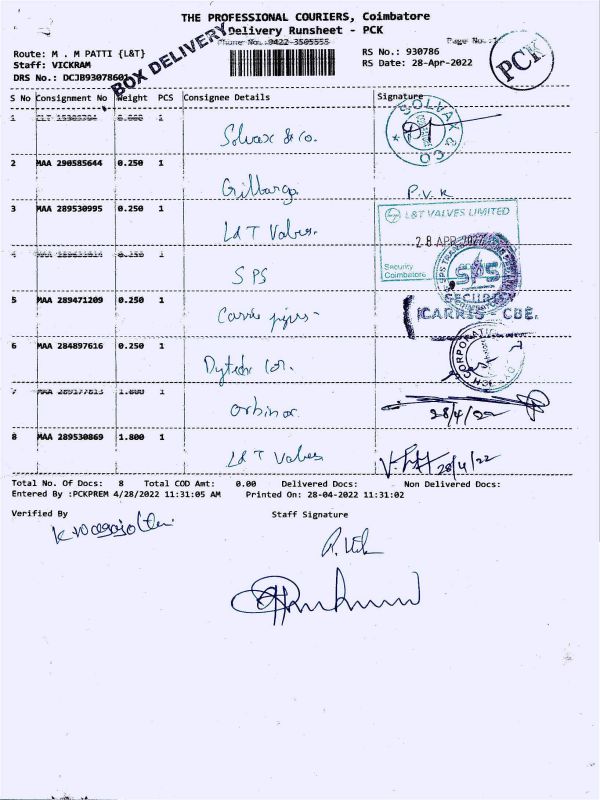 THE PROFESSIONAL COURIERS, Coimbatore
Delivery Runsheet - PCK
Phone No. :0422-3505555
Page No.
Route: M . M PATTI {L&T}
Staff: VICKRAM
DRS No.: DCJB93078601
BOX DELIVERY
RS No.: 930786
RS Date: 28-Apr-2022
PCK
S No Consignment No Weight PCS Consignee Details Signature
1 1 Solvax & Co. SOLVAX & CO
2 MAA 290585644 0.250 1 P.V.K
3 MAA 289530995 0.250 1 L&T Valves. L&T VALVES LIMITED
28 APR 2022
Security
Coimbatore
4 1 SPS SPS
SECURITY
5 MAA 289471209 0.250 1 CARRIS - CBE.
6 MAA 284897616 0.250 1
7 1.800 1 28/4/22
8 MAA 289530869 1.800 1 L&T Valves 28/4/22
Total No. Of Docs: 8 Total COD Amt: 0.00 Delivered Docs: Non Delivered Docs:
Entered By :PCKPREM 4/28/2022 11:31:05 AM Printed On: 28-04-2022 11:31:02
Verified By Staff Signature